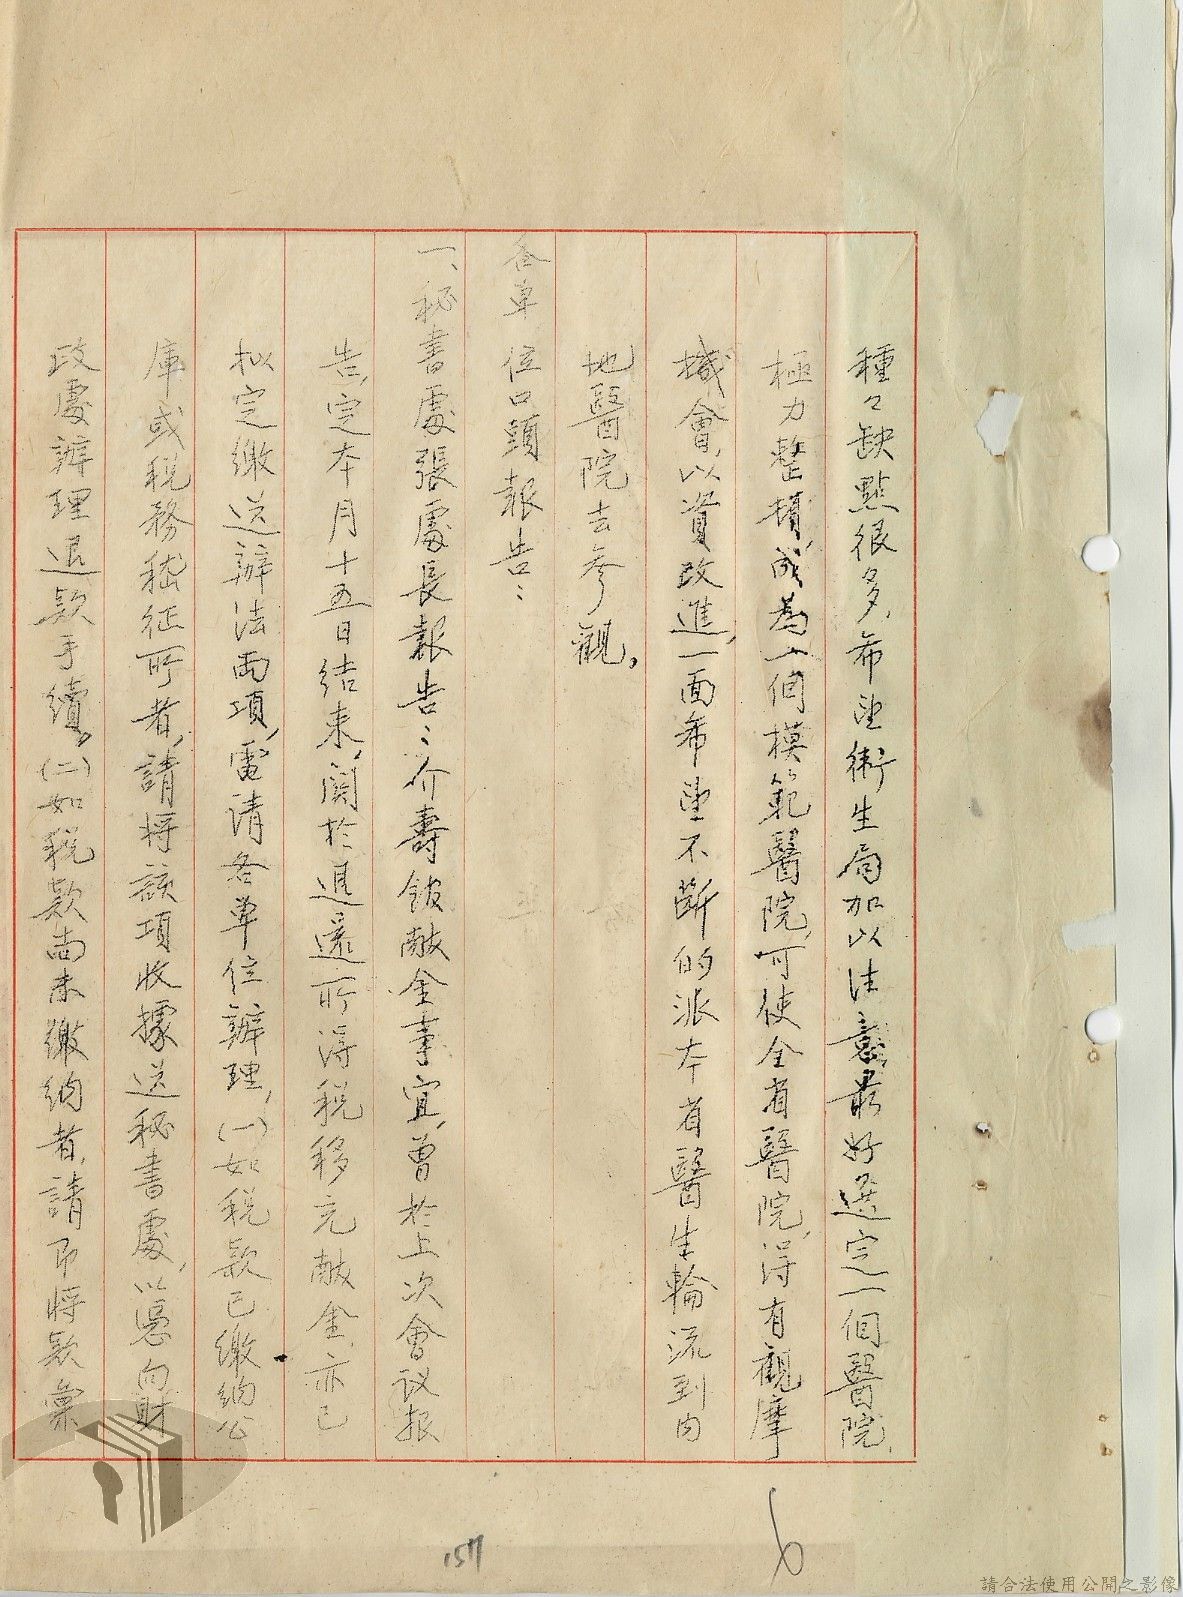 種々缺點很多，希望衛生局加以注意，最好選定一個醫院，
極力整頓，成為一個模範醫院，可使全省醫院，得有觀摩
機會，以資改進，一面希望不斷的派本省醫生輪流到內
地醫院去參觀。
各單位口頭報告：
一、秘書處張處長報告：介壽館献金事宜，曾於上次會议报
告，定本月十五日结束，関於退還所得税移充献金，亦已
拟定缴送辦法両項，電请各单位辦理，(一)如税款已缴纳公
庫或税務稽征所者，請将該項收據送秘書處，以憑向財
政處辦理退款手續。(二)如税款尚未缴纳者，請即将款彙
6
157
請合法使用公開之影像